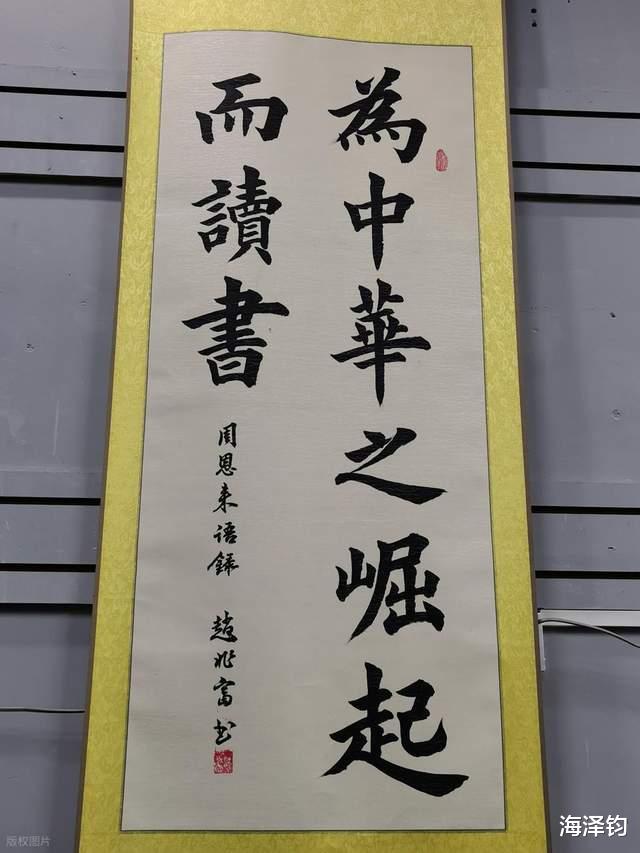 為中華之崛起
而讀書
周恩来语錄 趙兆富书
版权图片
海泽钧